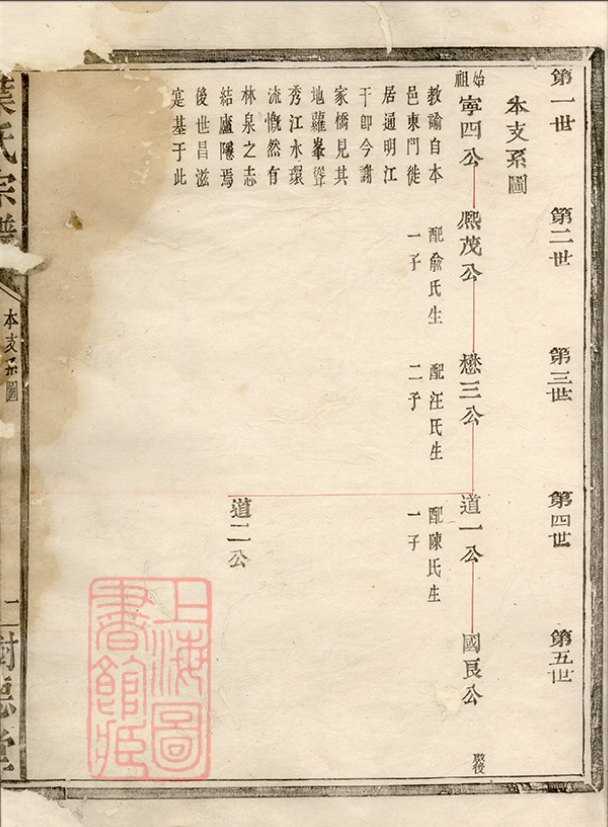 第一世
第二世
第三世
第四世
第五世
本支系圖
始祖
寧四公
熈茂公
懋三公
道一公
國良公
教諭自本
邑東門徙
居通明江
干即今謝
家橋見其
地蘿峯聳
秀江水環
流慨然有
林泉之志
結廬隱焉
後世昌滋
寔基于此
配俞氏生
一子
配汪氏生
二子
配陳氏生
一子
道二公
葉氏宗譜
本支系圖
二
上海圖
書館藏